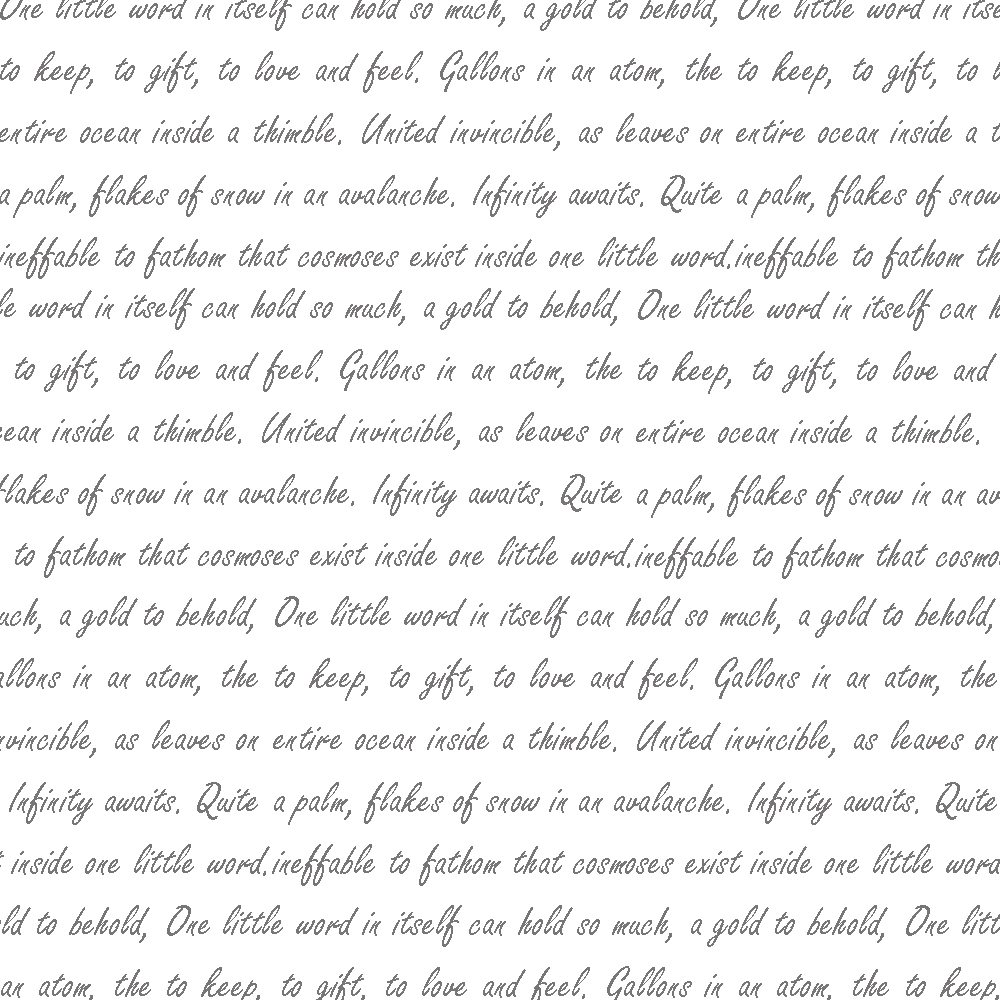 One little word in itself can hold so much, a gold to behold, One little word in itse
to keep, to gift, to love and feel. Gallons in an atom, the to keep, to gift, to l
entire ocean inside a thimble. United invincible, as leaves on entire ocean inside a t
a palm, flakes of snow in an avalanche. Infinity awaits. Quite a palm, flakes of snow
ineffable to fathom that cosmoses exist inside one little word.ineffable to fathom th
le word in itself can hold so much, a gold to behold, One little word in itself can h
to gift, to love and feel. Gallons in an atom, the to keep, to gift, to love and
cean inside a thimble. United invincible, as leaves on entire ocean inside a thimble.
flakes of snow in an avalanche. Infinity awaits. Quite a palm, flakes of snow in an av
to fathom that cosmoses exist inside one little word.ineffable to fathom that cosmo
uch, a gold to behold, One little word in itself can hold so much, a gold to behold,
allons in an atom, the to keep, to gift, to love and feel. Gallons in an atom, the
nvincible, as leaves on entire ocean inside a thimble. United invincible, as leaves on
Infinity awaits. Quite a palm, flakes of snow in an avalanche. Infinity awaits. Quite
t inside one little word.ineffable to fathom that cosmoses exist inside one little word
ld to behold, One little word in itself can hold so much, a gold to behold, One litt
an atom, the to keep, to gift, to love and feel. Gallons in an atom, the to keep,